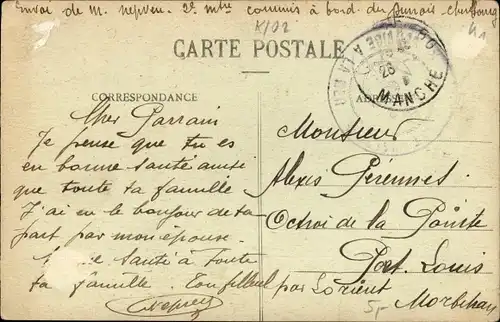 Envoi de M. Nepveu. 2e mtre commis à bord du cherbourg
K/02
CARTE POSTALE
CORRESPONDANCE
ADRESSE
MANCHE
26
Cher Parrain
Je pense que tu es
en bonne santé ainsi
que toute ta famille
J'ai eu le bonjour de ta
part par mon épouse.
santé à toute
ta famille. Ton filleul
Nepveu
Monsieur
Alexis Pérennes
Octroi de la Pointe
Port. Louis
par Lorient
Morbihan
5,-